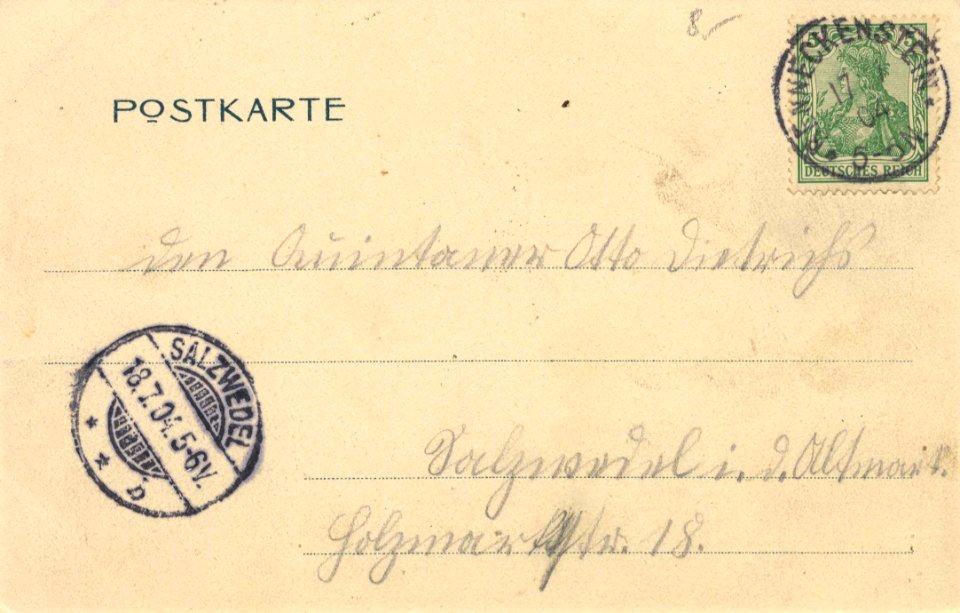 8.-
POSTKARTE
BENNECKENSTEIN
17 04
5-6N.
DEUTSCHES REICH
den Quintaner Otto Dietrichs
SALZWEDEL
18.7.04.5-6V.
* * D
Salzwedel i. d. Altmark.
Holzmarktstr. 18.